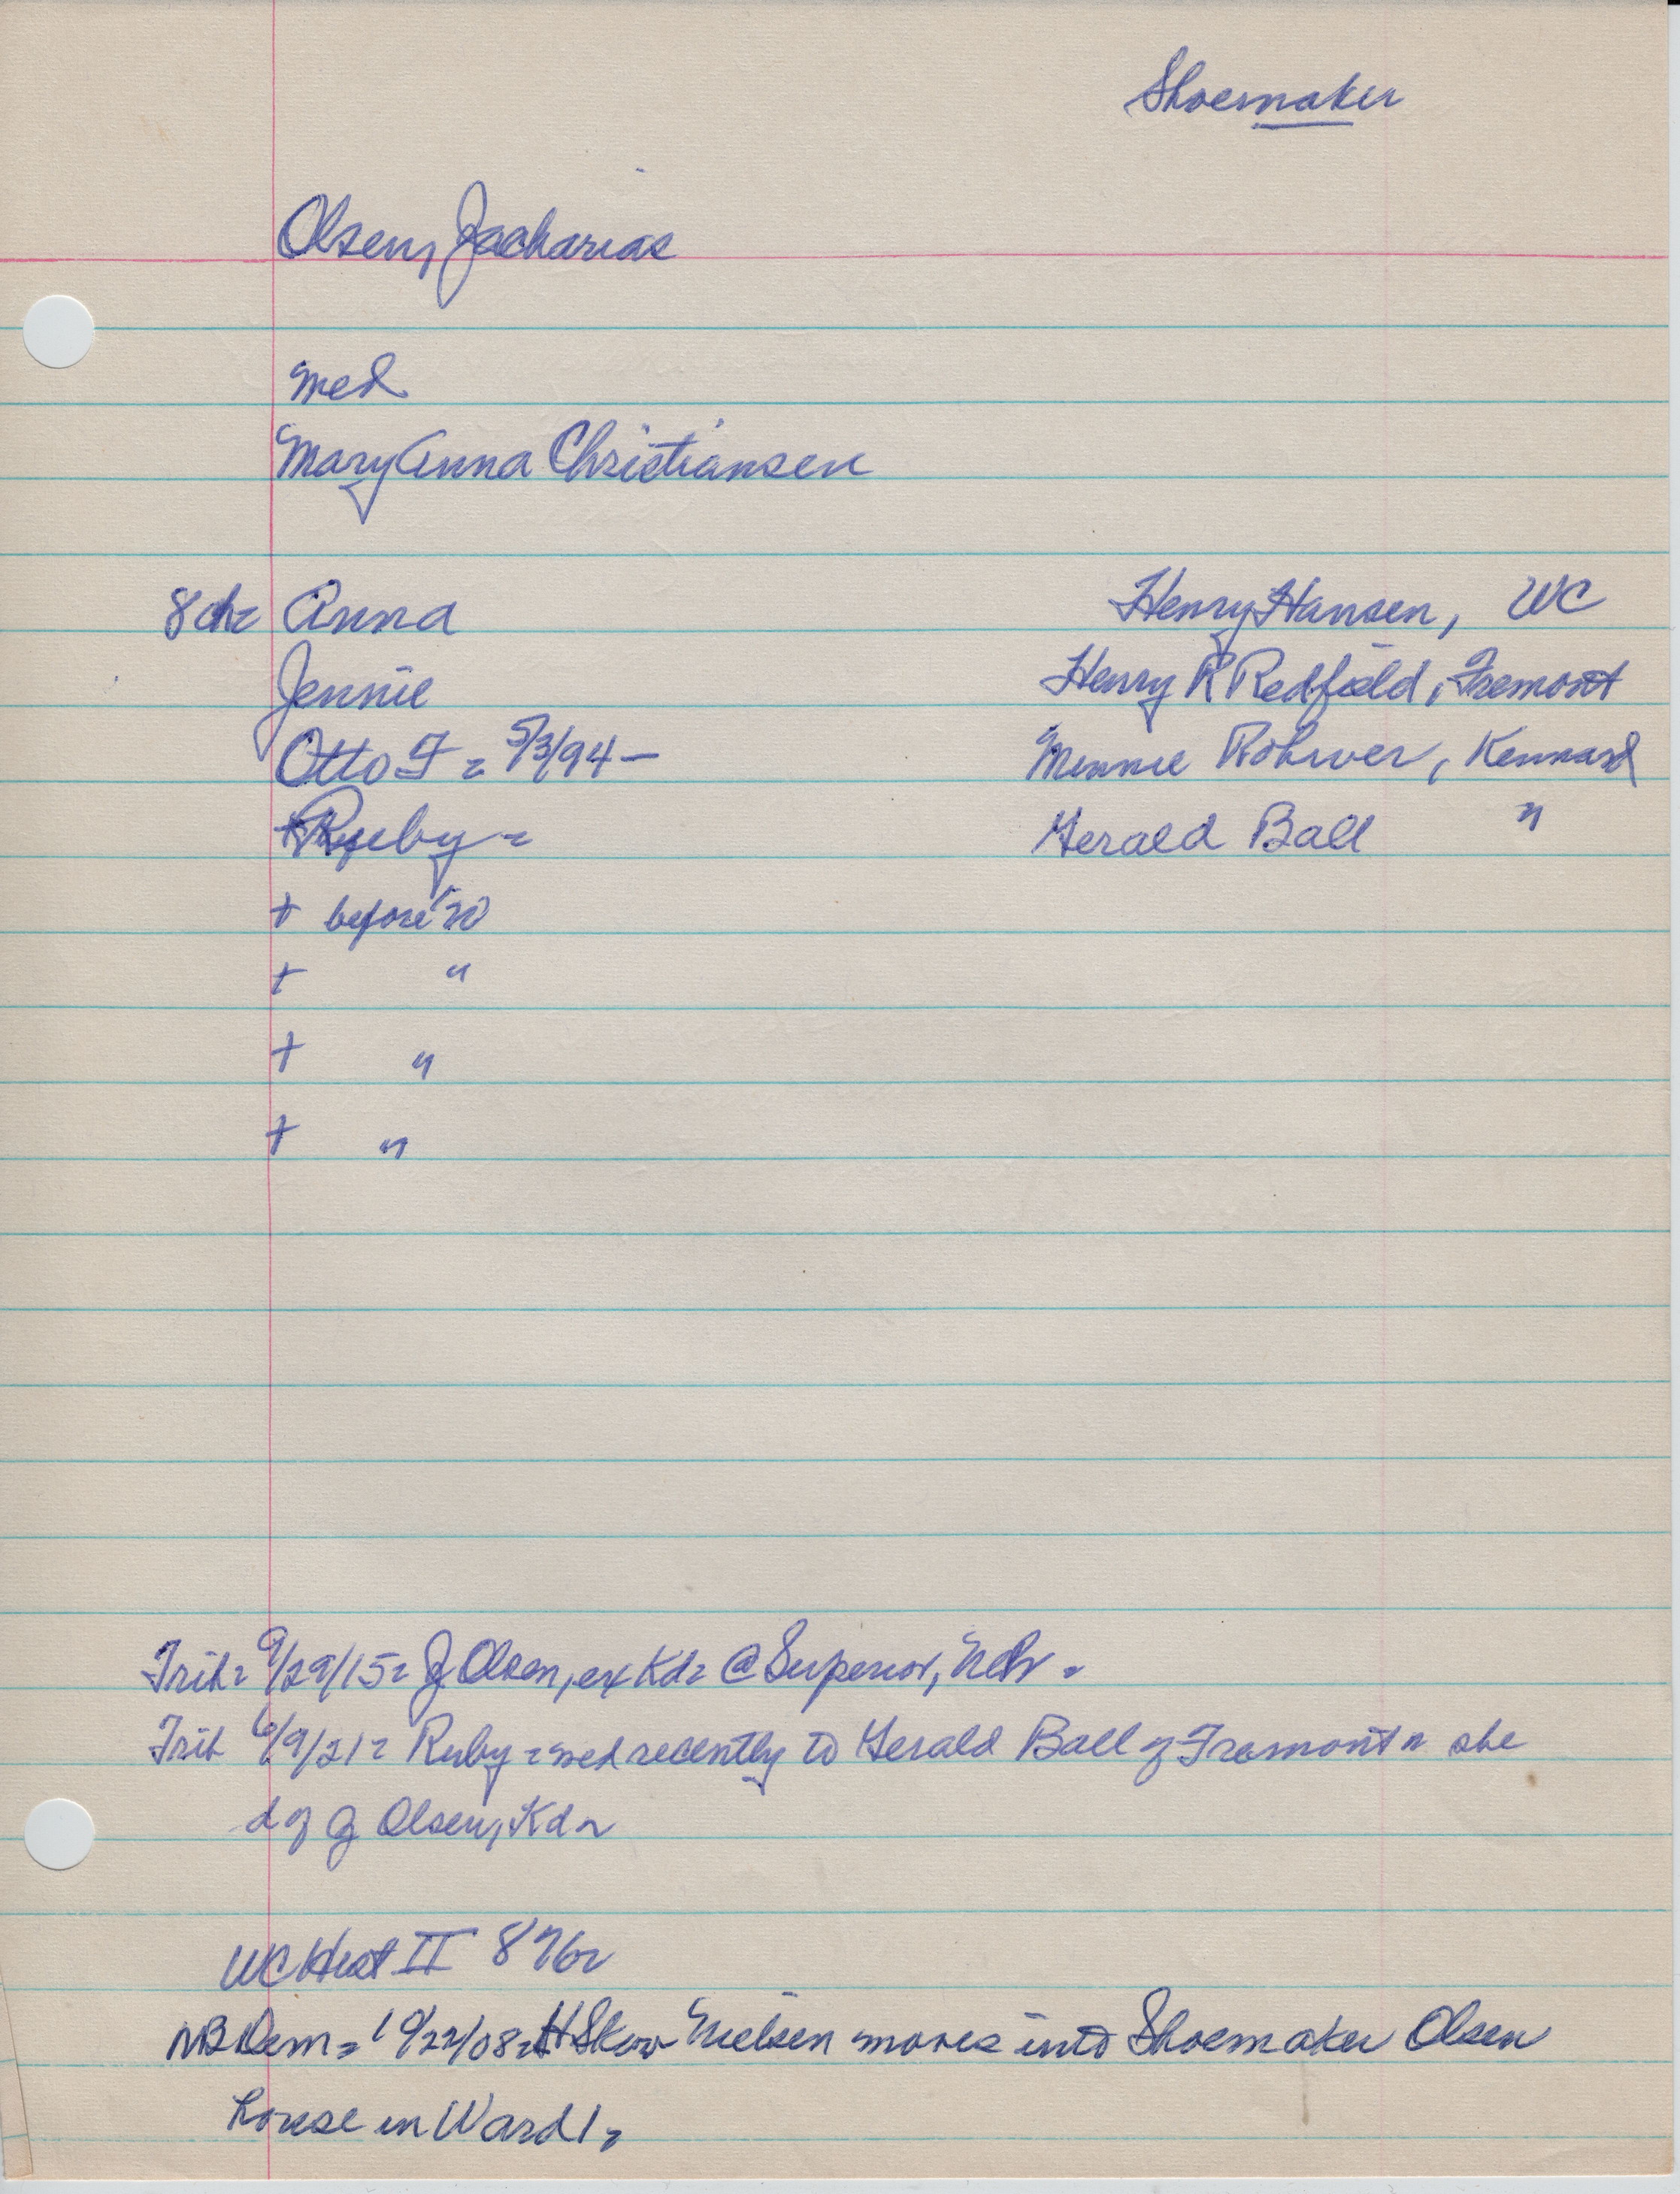 Shoemaker
Olsen, Zacharias
med
Mary Anna Christiansen
8 ch= Anna Henry Hansen, WC
Jennie Henry R Redfield, Fremont
Otto F = 5/3/94 – Minnie Rohwer, Kennard
Ruby = Gerald Ball "
+ before '20
+ "
+ "
+ "
Trib= 9/29/15= Z Olsen, ex Kd= @ Superior, Neb =
Trib 6/9/21= Ruby = med recently to Gerald Ball of Fremont = she
d of Z Olsen, Kd =
WC Hist II 876=
NB Dem = 10/22/08= H Skov Nielsen moves into Shoemaker Olsen
house in Ward 1 =